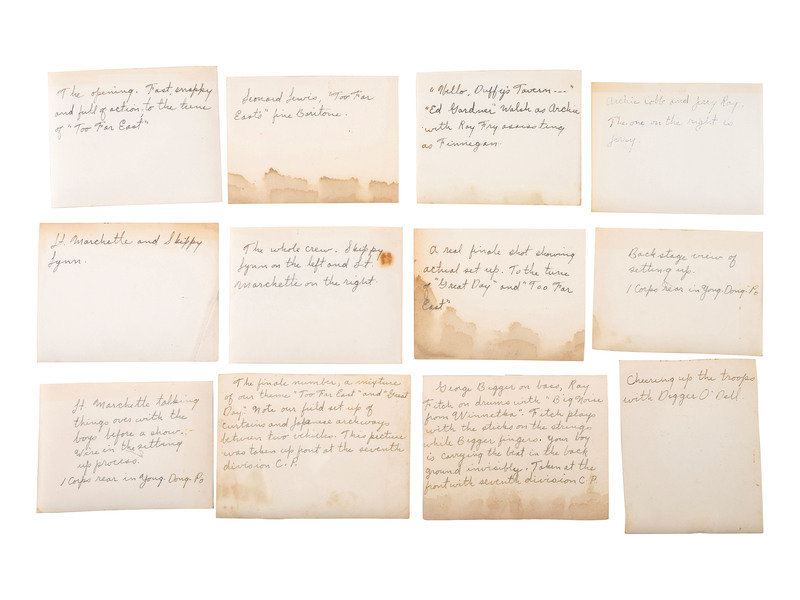 The opening. Fast, snappy
and full of action, to the tune
of "Too Far East"
Leonard Lewis, "Too Far
East's" fine Baritone.
"Hello, Duffy's Tavern---"
"Ed Gardner" Walsh as Archie
with Ray Fry assisting
as Finnegan.
Archie and Jerry Ray,
The one on the right is
Jerry
Lt. Marchette and Skippy
Lynn.
The whole crew. Skippy
Lynn on the left and Lt.
Marchette on the right.
A real finale shot showing
actual set up. To the tune
of "Great Day" and "Too Far
East"
Backstage view of
setting up.
I Corps rear in Yong-Dong-Po
Lt. Marchette talking
things over with the
boys before a show.
We're in the setting
up process.
I Corps rear in Yong-Dong-Po
The finale number, a mixture
of our theme "Too Far East" and "Great
Day". Note our field set up of
curtains and Japanese archways
between two vehicles. This picture
was taken up front at the seventh
division C.P.
George Bigger on bass, Ray
Fitch on drums with "Big Noise
from Winnetka". Fitch plays
with the sticks on the strings
while Bigger fingers. Your boy
is carrying the beat in the back
ground invisibly. Taken at the
front with seventh division C.P.
Cheering up the troops
with Digger O'Dell.